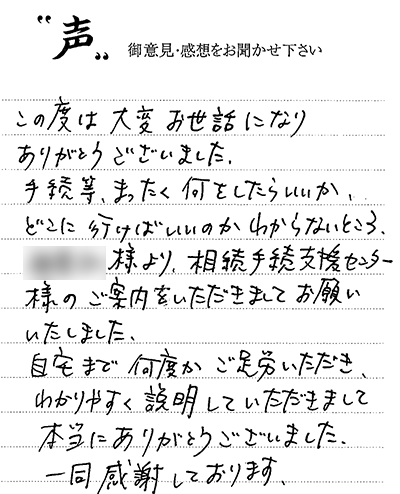 “声„ 御意見・感想をお聞かせ下さい
この度は 大変 お世話になり
ありがとうございました.
手続等、まったく 何をしたらいいか、
どこに 行けばいいのか わからないところ、
様より、相続手続支援センター
様の ご案内をいただきまして お願い
いたしました.
自宅まで 何度か ご足労いただき、
わかりやすく 説明していただきまして
本当にありがとうございました.
一同 感謝しております.